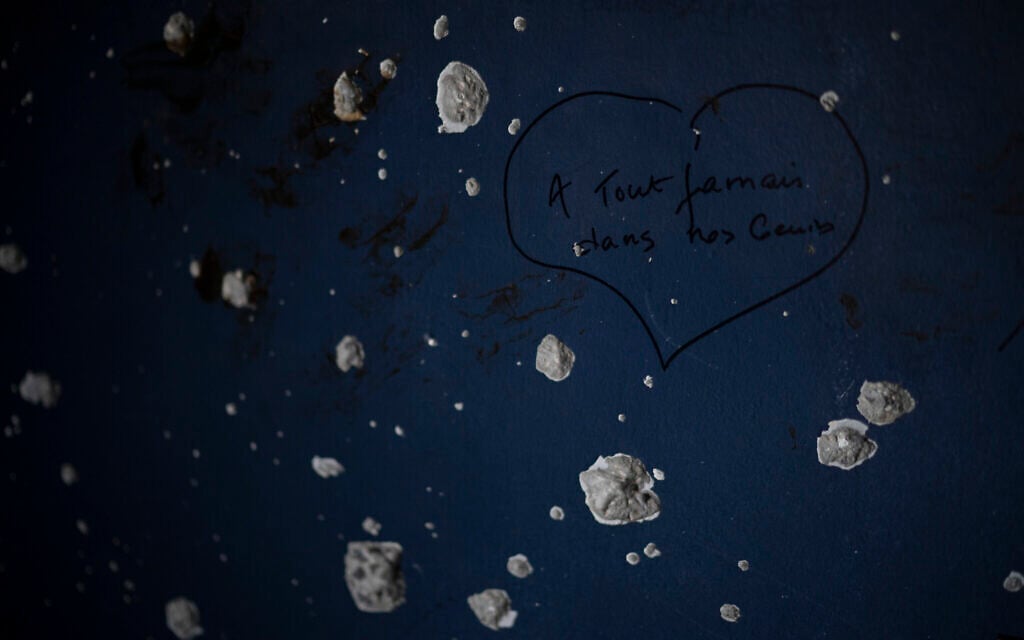 A Tout Jamais
dans nos Cœurs